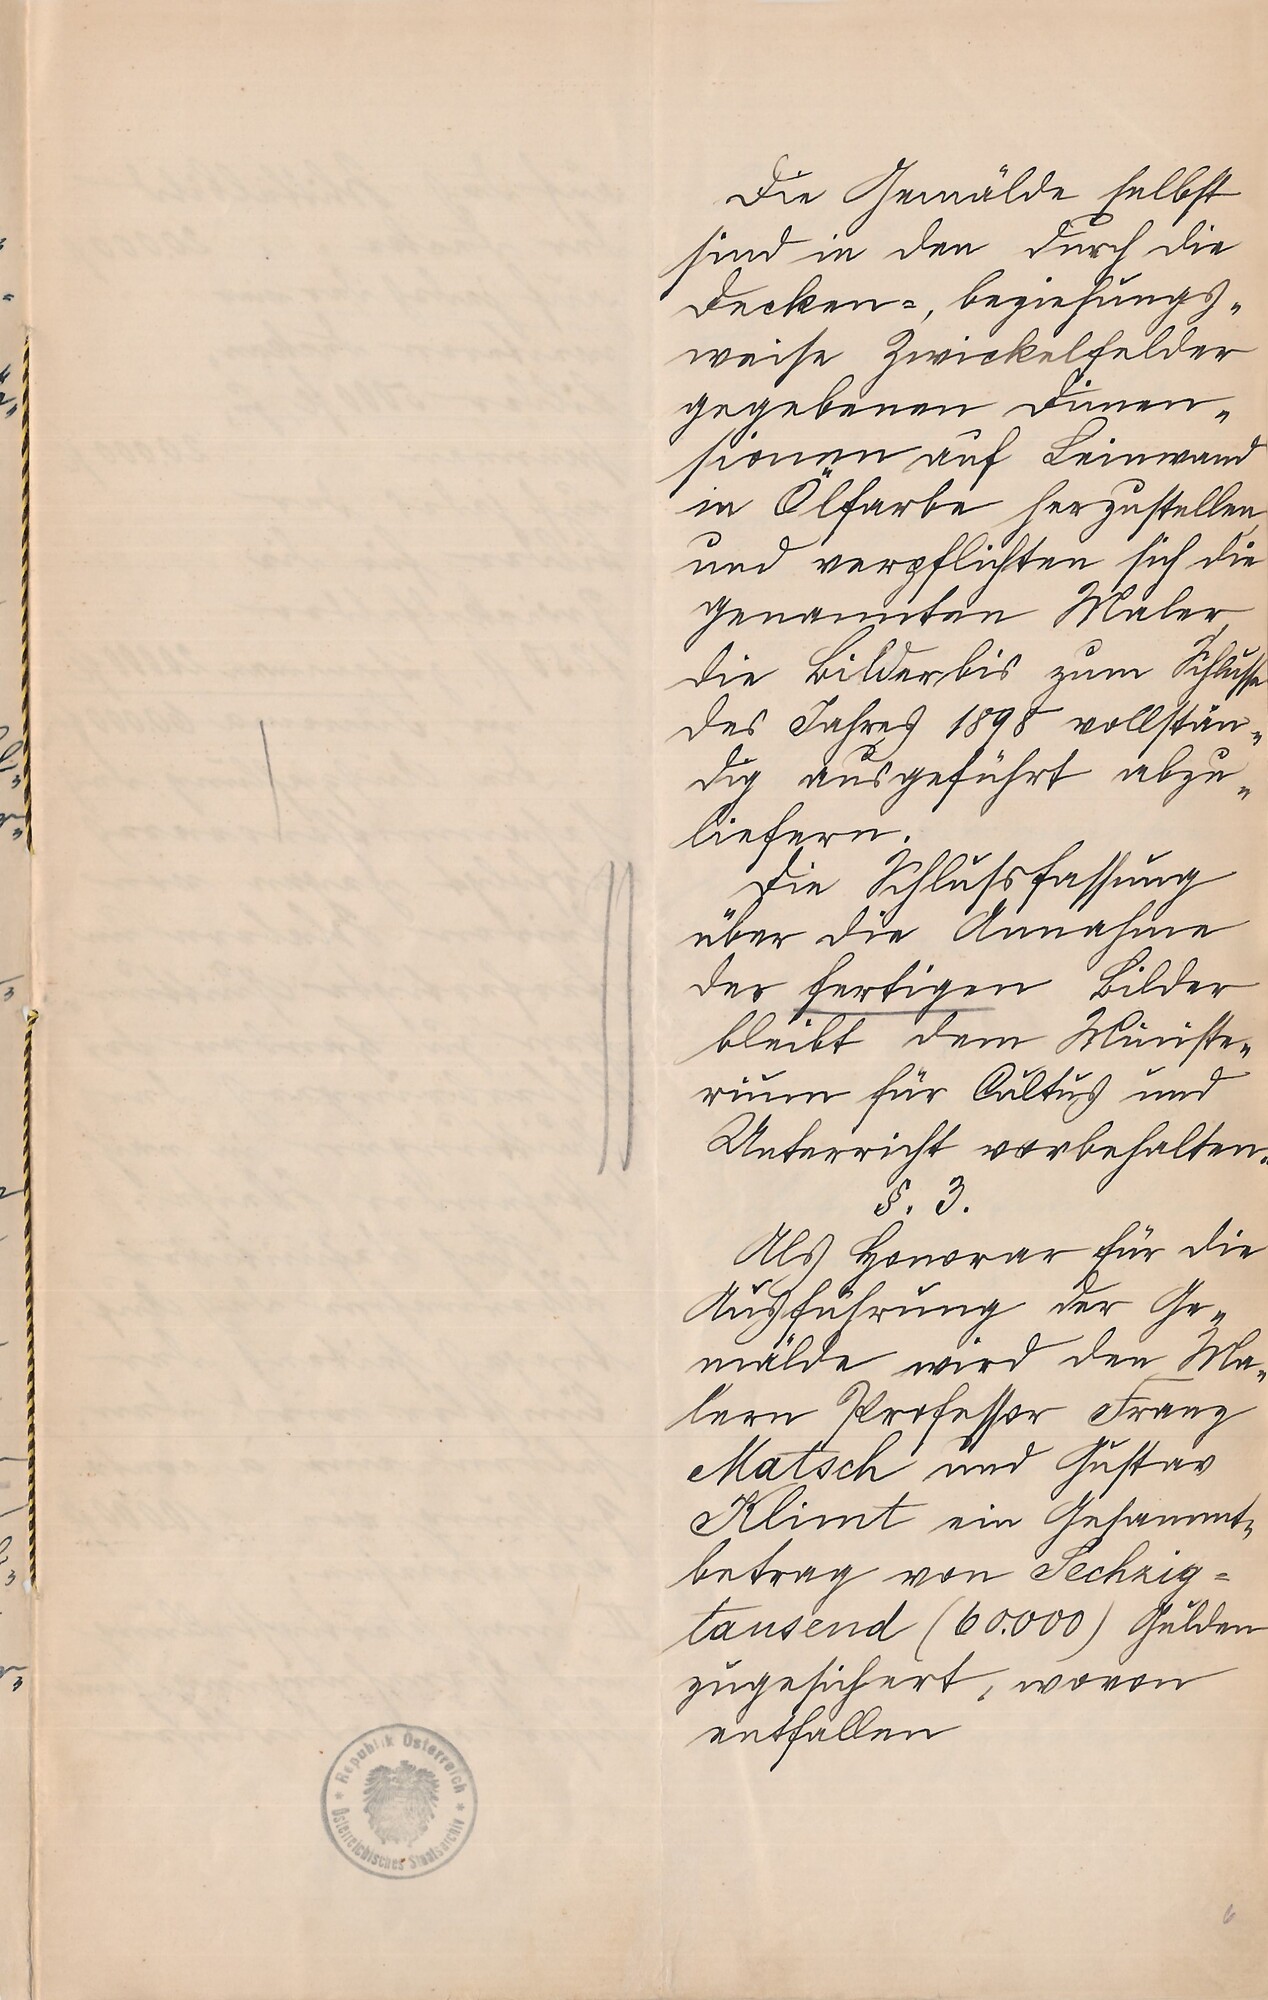 Die Gemälde selbst
sind in den durch die
Decken-, beziehungs-
weise Zwickelfelder
gegebenen Dimen-
sionen auf Leinwand
in Ölfarbe herzustellen
und verpflichten sich die
genannten Maler,
die Bilder bis zum Schlusse
des Jahres 1898 vollstän-
dig ausgeführt abzu-
liefern.
Die Schlußfassung
über die Annahme
der fertigen Bilder
bleibt dem Ministe-
rium für Cultus und
Unterricht vorbehalten.
§. 3.
Als Honorar für die
Ausführung der Ge-
mälde wird den Ma-
lern Professor Franz
Matsch und Gustav
Klimt ein Gesammt-
betrag von Sechzig-
tausend (60.000) Gulden
zugesichert, wovon
entfallen
Republik Österreich
Österreichisches Staatsarchiv
6